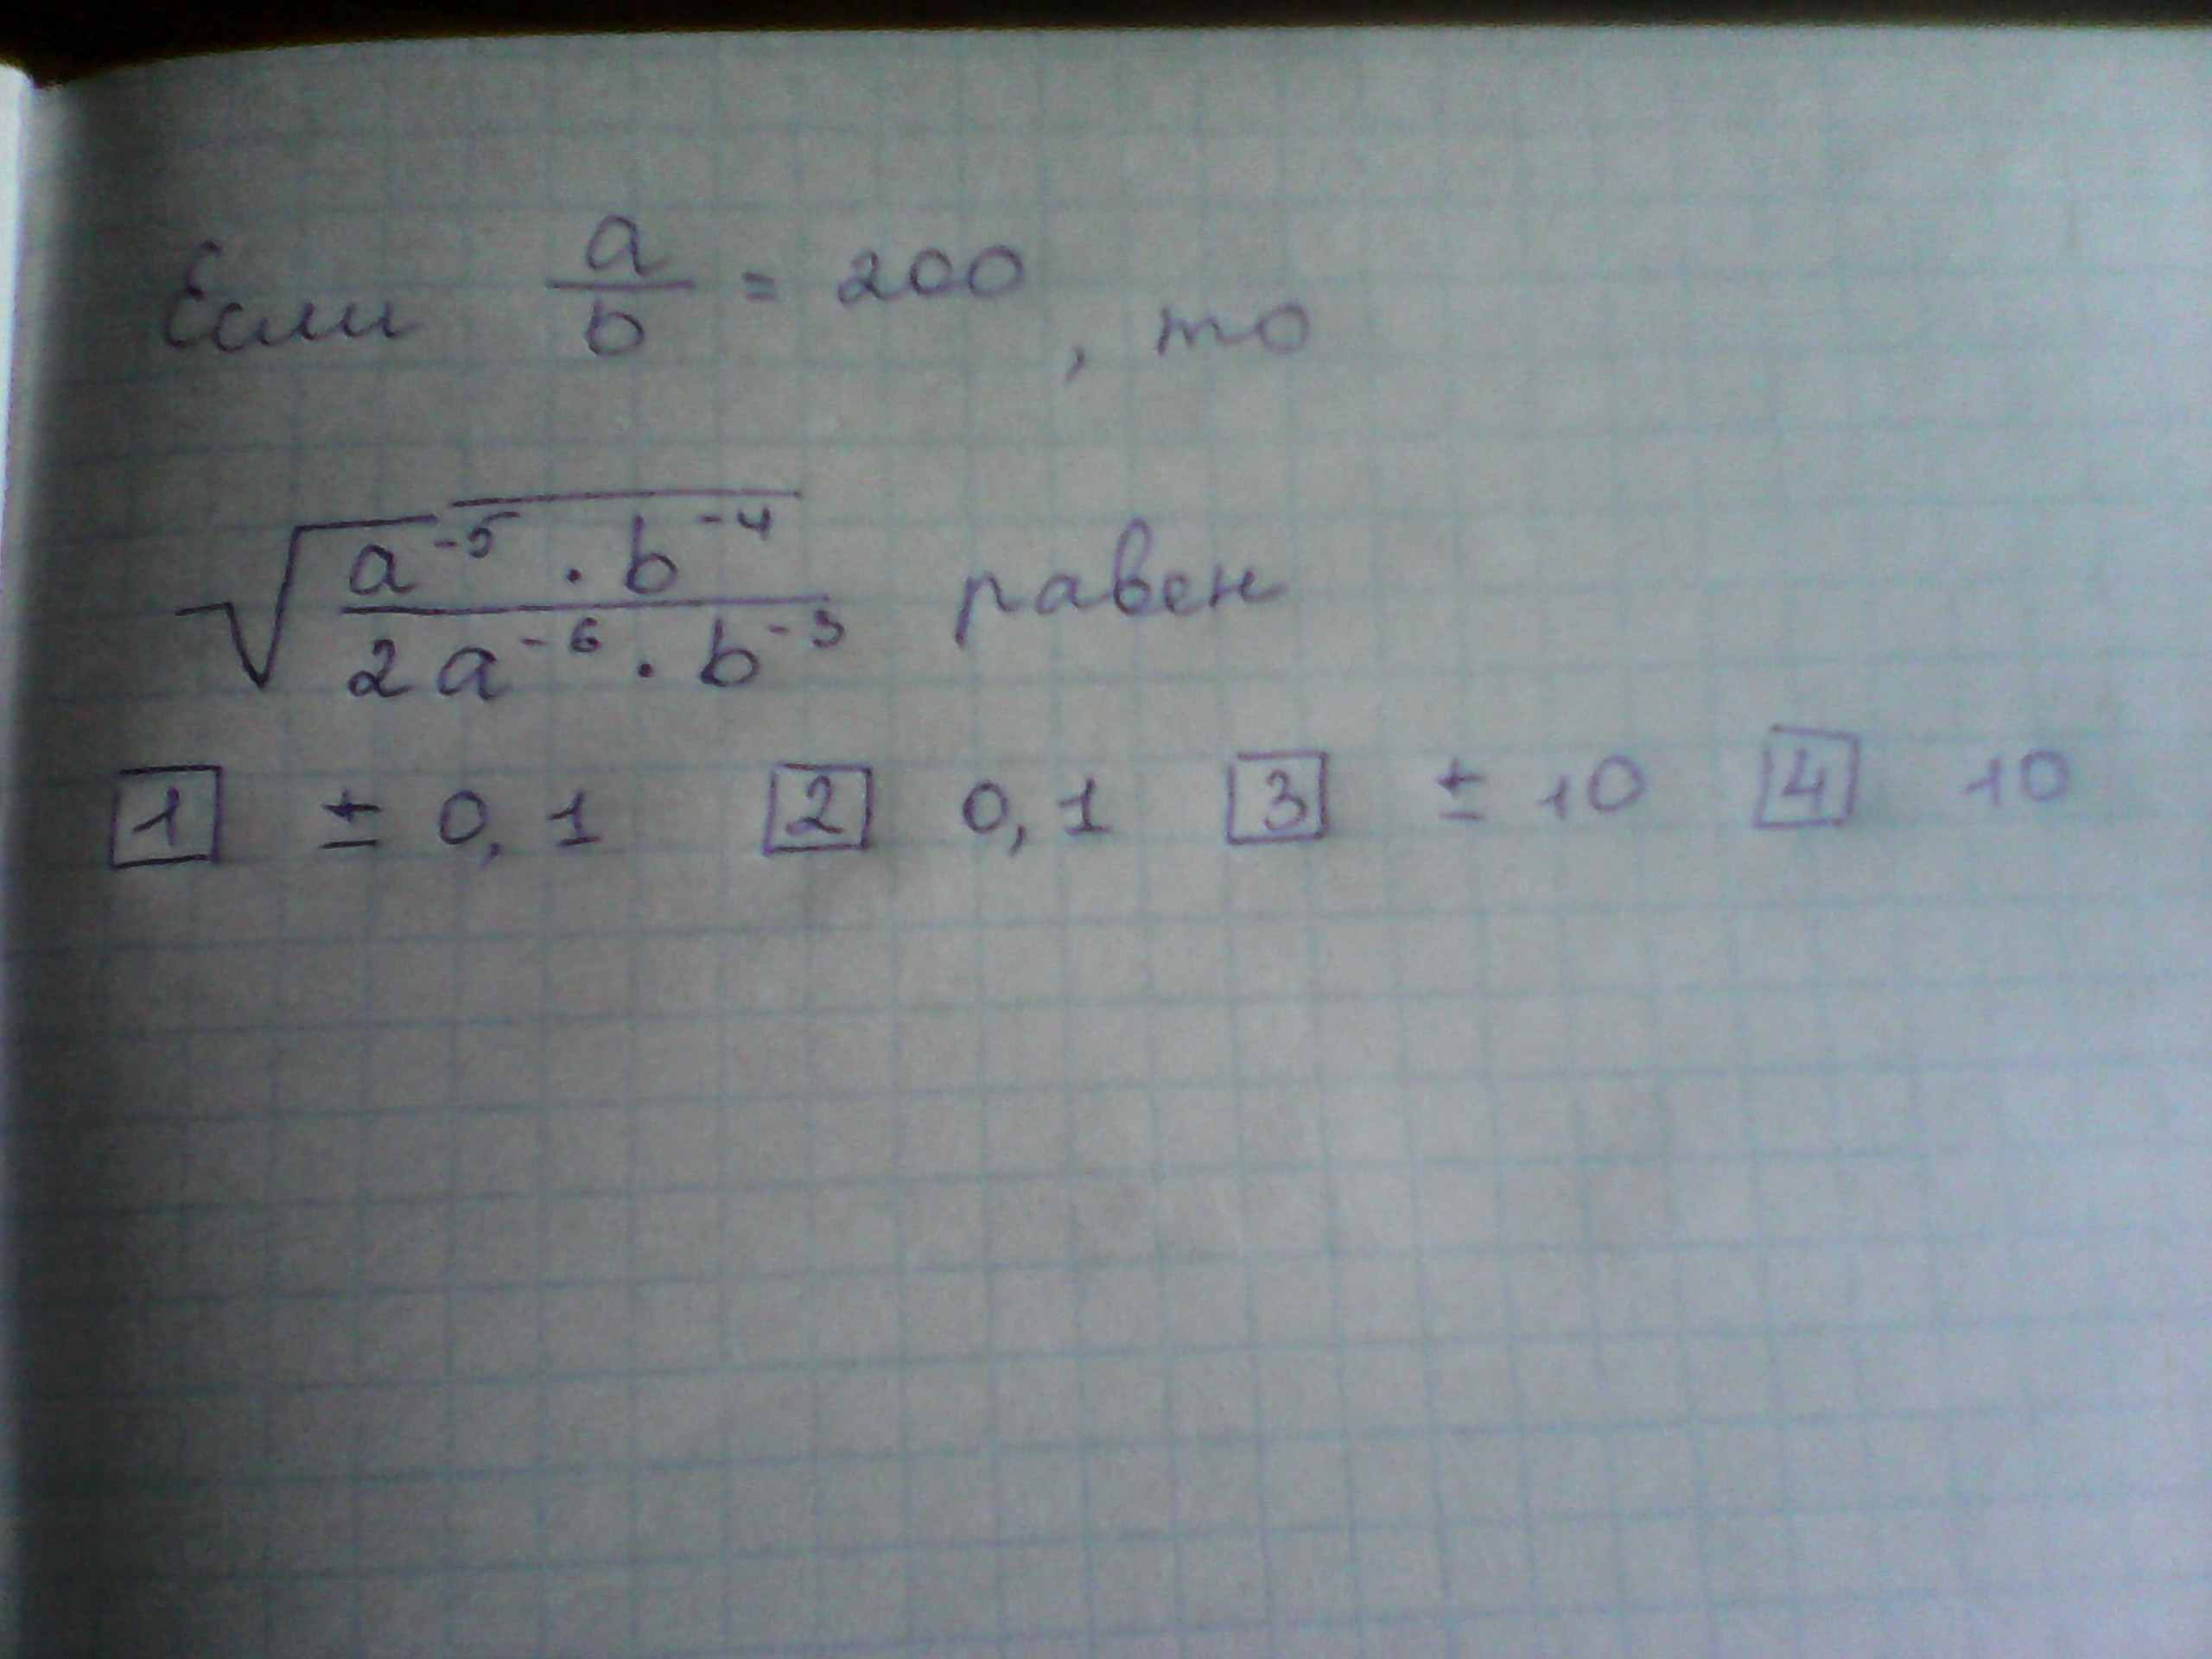 Если a/b = 200, то
√(a^-5 · b^-4 / 2a^-6 · b^-3) равен
1 ± 0,1 2 0,1 3 ± 10 4 10